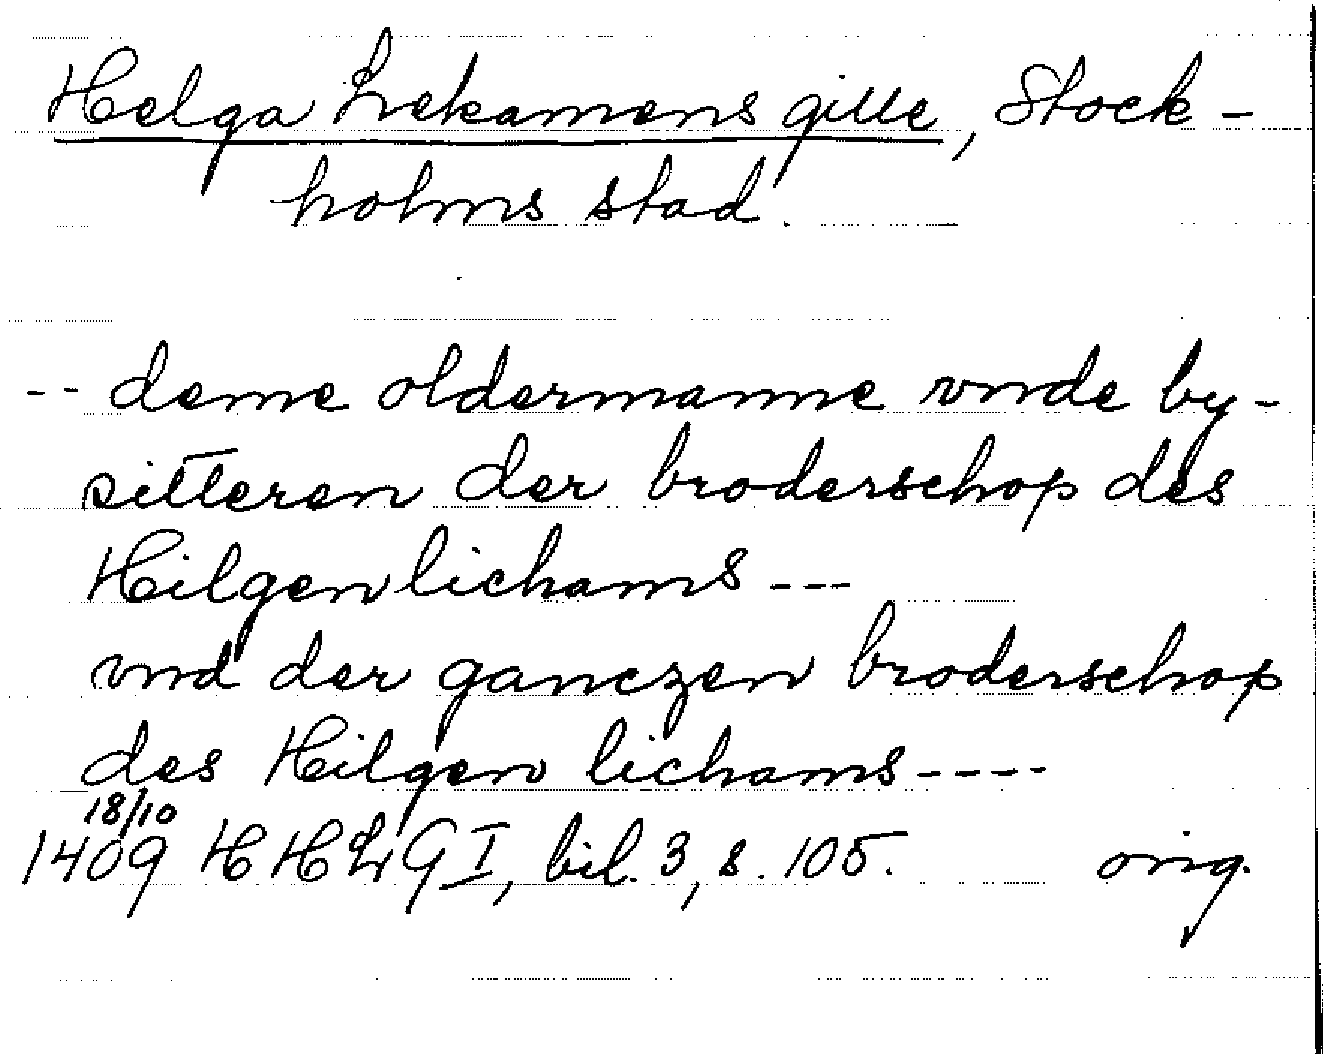 Helga Lekamens gille, Stock-
holms stad.
-- deme oldermanne vnde by-
sitteren der broderschop des
Hilgen lichams ---
vnd der ganczen broderschop
des Hilgen lichams ----
18/10
1409 HHLG I, bil. 3, s. 105. orig.